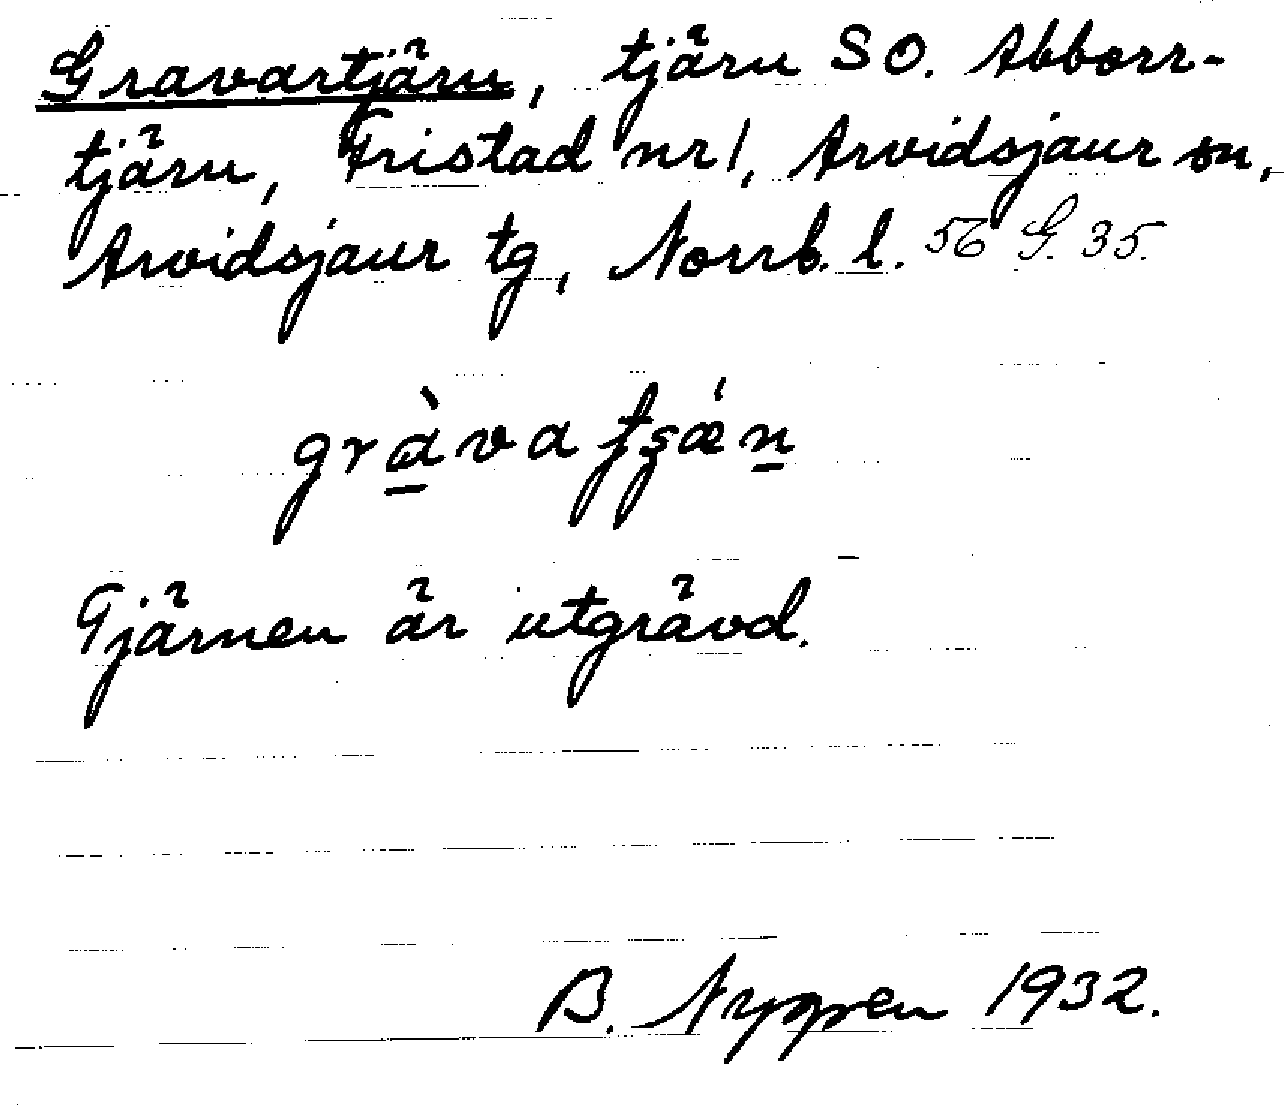 Gravartjärn, tjärn SO. Abborr-
tjärn, Fristad nr 1, Arvidsjaur sn,
Arvidsjaur tg, Norrb. l. 56 G. 35.
gràvatsǽn
Tjärnen är utgrävd.
B. Nygren 1932.